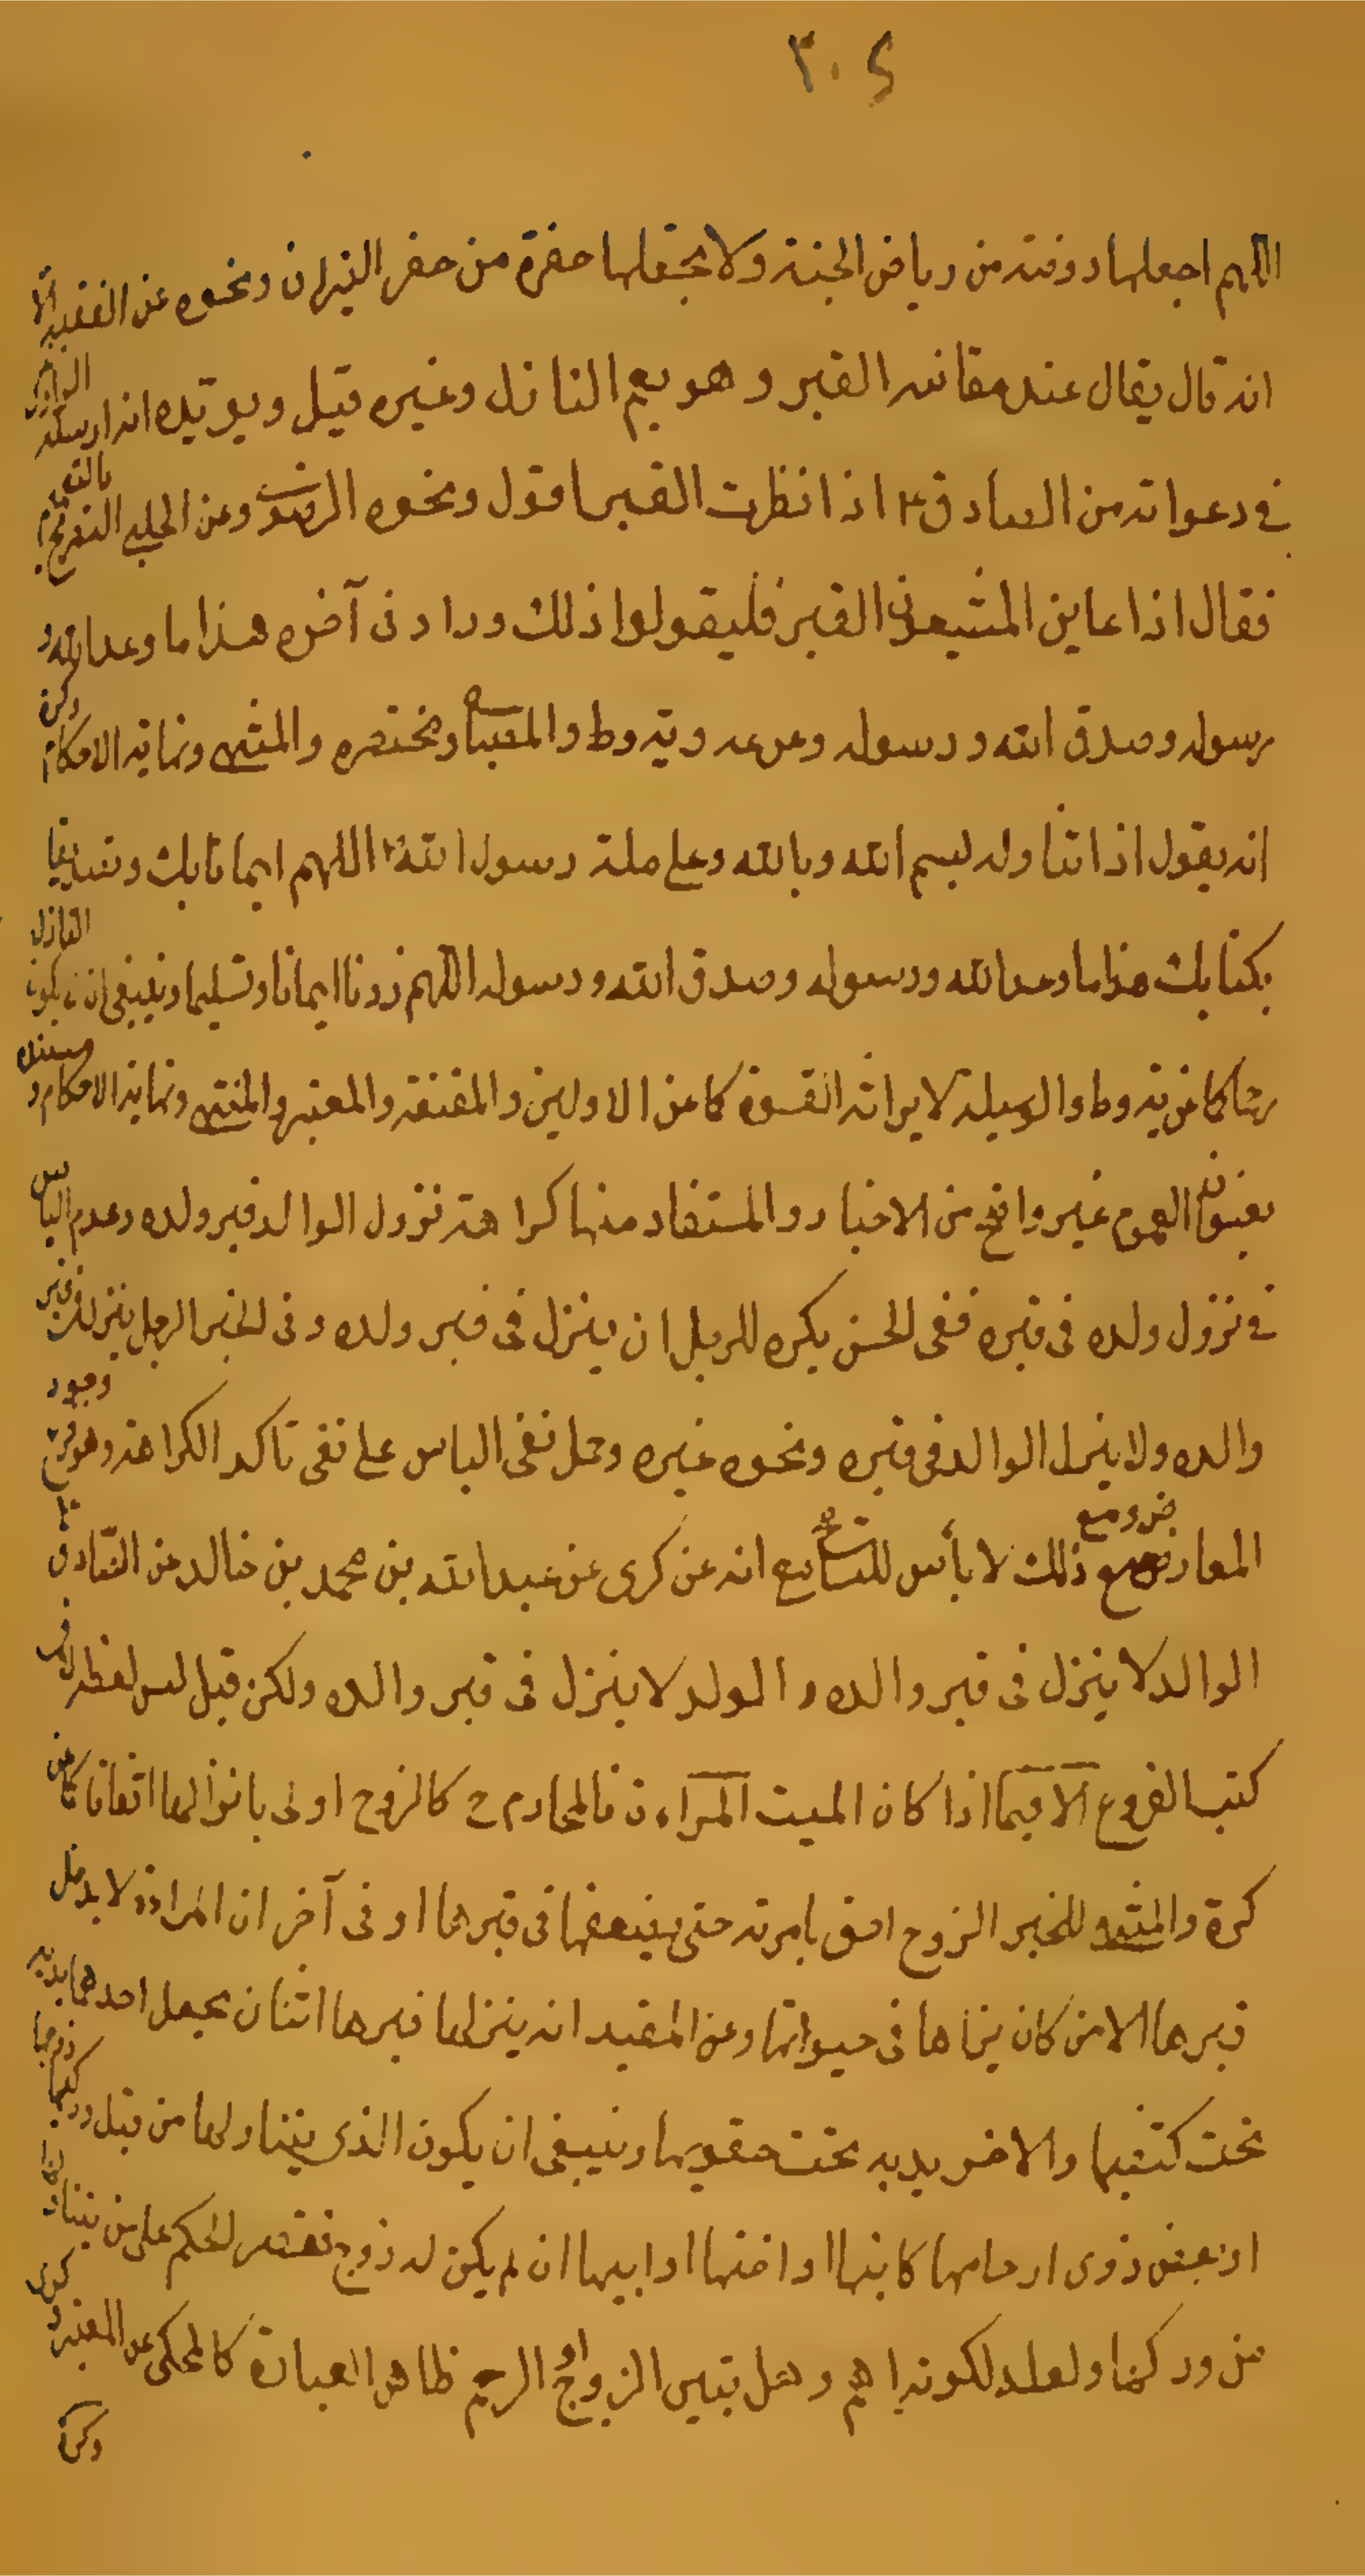 ٣٠٤
اللهم اجعلها روضة من رياض الجنة ولا تجعلها حفرة من حفر النيران ونحوه عن الفقيه الا
انه قال يقال عند معاينه القبر و هو يعم النازل وغيره قيل ويؤيده ارسله الراوندى
في دعواته من الصادق ع اذا نظرت القبر فقول ونحوه الرضوى وعن الحلبي التصريح بالتعميم
فقال اذا عاين المشيعون القبر فليقولوا ذلك وزاد فى آخره هذا ما وعد الله و
رسوله وصدق الله ورسوله وعن يه وط والمصباح ومختصره والمنتهى ونهاية الاحكام وكرة
انه يقول اذا تناوله بسم الله وبالله وعلى ملة رسول الله اللهم ايمانا بك وتصديقا
بكتابك هذا ما وعد الله ورسوله وصدق الله ورسوله اللهم زدنا ايمانا وتسليما وينبغى ان يكون النازل
كما عن يه وط والوسيلة لايراثه القسوة كما عن الاولين والمقنعة والمعتبر والمنتهى ونهاية الاحكام و مستنده
بعنوان العموم غير واضح من الاخبار والمستفاد منها كراهة نزول الوالد قبر ولده وعدم الباس
في نزول ولده فى قبره ففى الحسن يكره للرجل ان ينزل فى قبر ولده وفى الخبر الرجل ينزل فى قبر
والده ولا ينزل الوالد فى قبره ونحوه غيره وحمل نفى الباس على نفى تاكد الكراهة وهو فرع وجود
المعارض ومع ذلك لا بأس للتسامح مع انه عن كرى عن عبد الله بن محمد بن خالد عن الصادق ع
الوالد لا ينزل فى قبر والده والولد لا ينزل فى قبر والده ولكن قيل ليس لفظه لا فى
كتب الفروع الا فيما اذا كان الميت المراءة فالمحارم ح كالزوج اولى بانزالها اتفاقا كما عن
كرة والمنتهى للخبر الزوج احق بامرته حتى يضعها فى قبرها او فى آخر ان المراءة لا يدخل
قبرها الا من كان يراها فى حيوتها وعن المفيد انه ينزلها قبرها اثنان يجعل احدهما يديه
تحت كتفيها والاخر يديه تحت حقويها وينبغى ان يكون الذى يتناولها من قبل وركيها زوجها
او بعض ذوى ارحامها كابنها او اخيها او ابيها ان لم يكن له زوج فقصر الحكم على من يتناولها
من وركها ولعله لكونه اهم وهل يتعين الزواج او الرحم ظاهر العبارة كالمحكى عن المعتبر و كرى
وكرة